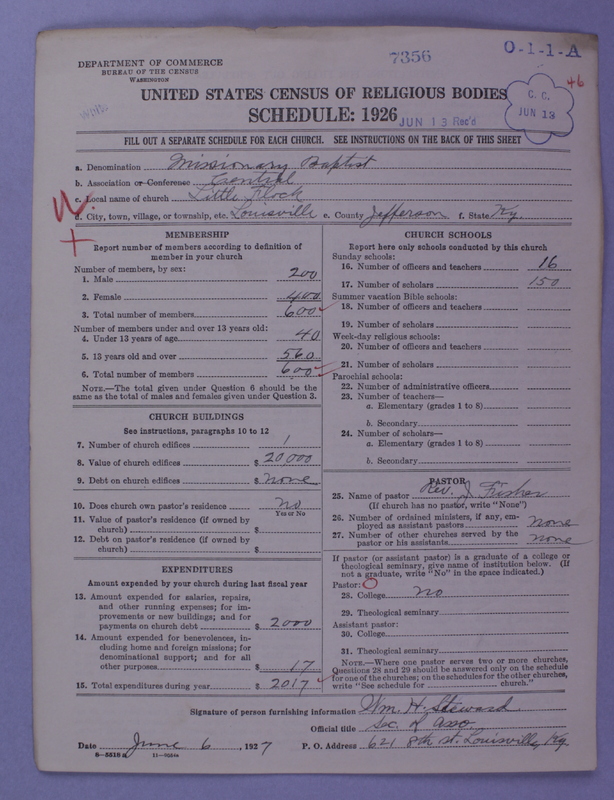 7356
O-1-1-A
46
DEPARTMENT OF COMMERCE
BUREAU OF THE CENSUS
WASHINGTON
UNITED STATES CENSUS OF RELIGIOUS BODIES
SCHEDULE: 1926
JUN 13 Rec'd
C. C.
JUN 13
White
FILL OUT A SEPARATE SCHEDULE FOR EACH CHURCH. SEE INSTRUCTIONS ON THE BACK OF THIS SHEET
a. Denomination Missionary Baptist
b. Association or Conference Central
c. Local name of church Little Flock
d. City, town, village, or township, etc. Louisville e. County Jefferson f. State Ky.
MEMBERSHIP
Report number of members according to definition of
member in your church
Number of members, by sex:
1. Male 200
2. Female 400
3. Total number of members 600
Number of members under and over 13 years old:
4. Under 13 years of age 40
5. 13 years old and over 560
6. Total number of members 600
NOTE.—The total given under Question 6 should be the
same as the total of males and females given under Question 3.
CHURCH BUILDINGS
See instructions, paragraphs 10 to 12
7. Number of church edifices 1
8. Value of church edifices $ 20,000
9. Debt on church edifices $ none
10. Does church own pastor's residence no
Yes or No
11. Value of pastor's residence (if owned by
church) $
12. Debt on pastor's residence (if owned by
church) $
EXPENDITURES
Amount expended by your church during last fiscal year
13. Amount expended for salaries, repairs,
and other running expenses; for im-
provements or new buildings; and for
payments on church debt $ 2000
14. Amount expended for benevolences, in-
cluding home and foreign missions; for
denominational support; and for all
other purposes $ 17
15. Total expenditures during year $ 2017
CHURCH SCHOOLS
Report here only schools conducted by this church
Sunday schools:
16. Number of officers and teachers 16
17. Number of scholars 150
Summer vacation Bible schools:
18. Number of officers and teachers
19. Number of scholars
Week-day religious schools:
20. Number of officers and teachers
21. Number of scholars
Parochial schools:
22. Number of administrative officers
23. Number of teachers—
a. Elementary (grades 1 to 8)
b. Secondary
24. Number of scholars—
a. Elementary (grades 1 to 8)
b. Secondary
PASTOR
25. Name of pastor Rev. J. Fisher
(If church has no pastor, write "None")
26. Number of ordained ministers, if any, em-
ployed as assistant pastors none
27. Number of other churches served by the
pastor or his assistants none
If pastor (or assistant pastor) is a graduate of a college or
theological seminary, give name of institution below. (If
not a graduate, write "No" in the space indicated.)
Pastor:
28. College no
29. Theological seminary
Assistant pastor:
30. College
31. Theological seminary
NOTE.—Where one pastor serves two or more churches,
Questions 28 and 29 should be answered only on the schedule
for one of the churches; on the schedules for the other churches,
write "See schedule for church."
Signature of person furnishing information Wm. H. Steward
Official title Sec. of Asso.
Date June 6, 1927 P. O. Address 621 8th st. Louisville, Ky
8—5518 a